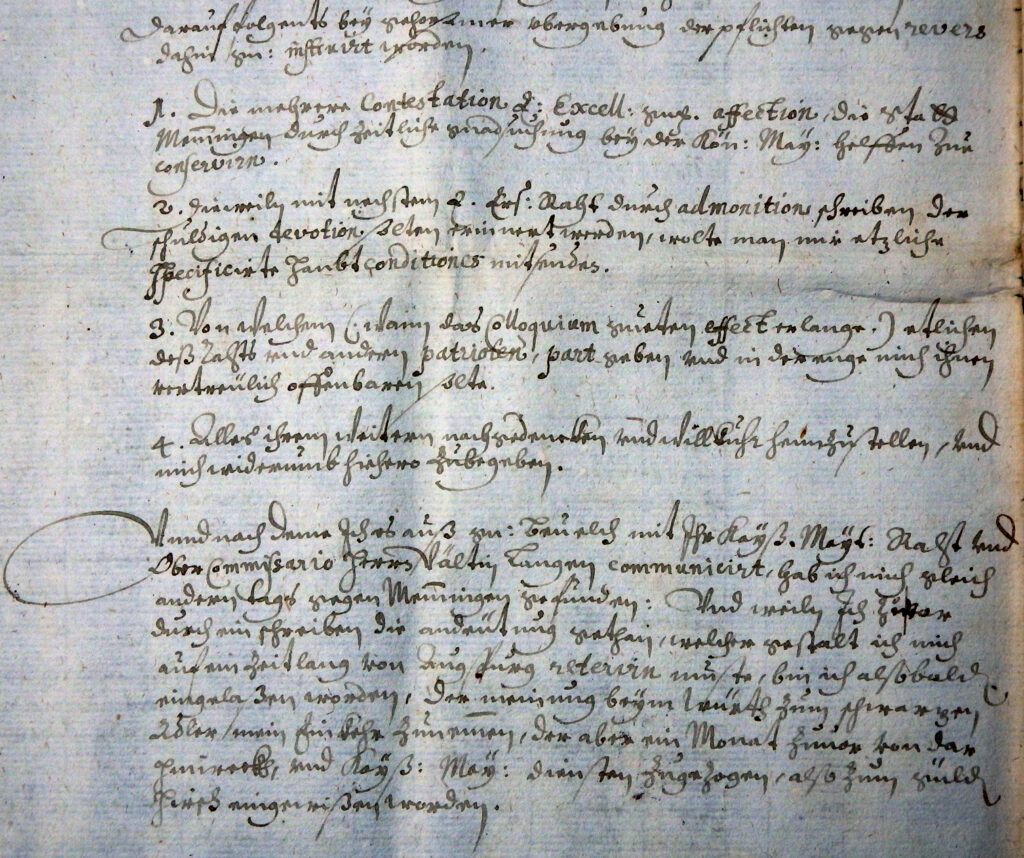 darauf folgents bey gehorsamer vbergebung der pflichten gegen revers
dahin gn: instruirt worden.
1. Die mehrere Contestation E: Excell: gnd. affection, die Statt
Memmingen durch Zeitliche gnadsuchung bey der Kön: May: helffen zue
conservirn.
2. dieweiln mit nechstem E. Ers: Raht durch admonition schreiben der
schuldigen devotion solten erinnert werden, wolte man mir etzliche
specificirte haubt conditiones mitsenden.
3. Von welchem (wann das Colloquium gueten effect erlange.) etlichen
deß Rahts vnd andern patrioten, part geben vnd in der enge mich ihnen
vertreulich offenbaren solte.
4. Alles ihrem weitern nachgedencken vnd willkuhr heimzustellen, vnd
mich widerumb hiehero zubegeben.
Vnnd nach deme Ich es auß gn: beuelch mit Ihr Kayß. Mayt: Raht vnd
Ober Commissario Herrn Valtin Langen communicirt, hab ich mich gleich
andern tags gegen Memmingen gefunden: Vnd weiln Ich zwar
durch ein schreiben die andeutung gethan, welcher gestalt ich mich
auf ein Zeitlang von Augspurg reterirn muste, bin ich alsobald
eingelaßen worden, der meinung beym Würth zum schwarzen
Adler mein Einkehr zunemmen, der aber ein Monat zuuor von dar
hinweckh, vnd Kayß: May: diensten zugezogen, also zum güld
Hirsch eingewißen worden.